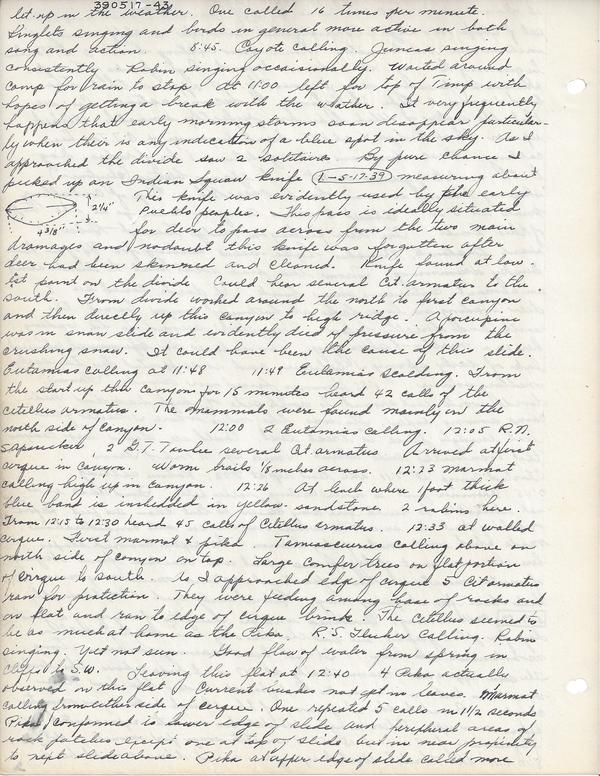 390517-43
let up in the weather. One called 16 times per minute.
Kinglets singing and birds in general more active in both
song and action. 8:45. Coyote calling. Juncos singing
consistently. Robin singing occaisionally. Waited around
camp for rain to stop. At 11:00 left for top of Timp with
hopes of getting a break with the weather. It very frequently
happens that early morning storms soon disappear particular-
ly when their is any indication of a blue spot in the sky. As I
approached the divide saw 2 solitaires. By pure chance I
picked up an Indian Squaw knife (1-5-17-39) measuring about
2 1/4"
4 3/8"
This knife was evidently used by the early
Pueblo peoples. This pass is ideally situated
for deer to pass across from the two main
drainages and nodoubt this knife was forgotten after
deer had been skinned and cleaned. Knife found at low-
est point on the divide. Could hear several Cit. armatus to the
south. From divide worked around the north to first canyon
and then directly up this canyon to high ridge. A porcupine
was in snow slide and evidently died of pressure from the
crushing snow. It could have been the cause of this slide.
Eutamias calling at 11:48 11:49 Eutamias scolding. From
the start up this canyon for 15 minutes heard 42 calls of the
citellus armatus. The mammals were found mainly on the
north side of canyon. 12:00 2 Eutamias calling. 12:05 R.N.
Sapsucker, 2 G.T. Towhee several Cit. armatus Arrived at first
cirque in canyon. Worm trails 1/8 inches across. 12:23 Marmot
calling high up in canyon. 12:26 At level where 1 foot thick
blue band is imbedded in yellow sandstone. 2 robins here.
From 12:15 to 12:30 heard 45 calls of Citellus armatus. 12:33 at walled
cirque. First marmot & pika. Tamiasciurus calling above on
north side of canyon on top. Large conifer trees on flat portion
of cirque to south. As I approached edge of cirque 5 Cit armatus
ran for protection. They were feeding among base of rocks and
on flat and ran to edge of cirque brink. The Citellus seemed to
be as much at home as the Pika. R.S. Flicker Calling. Robin
singing. Yet not sun. Good flow of water from spring in
cliffs to S.W. Leaving this flat at 12:40 4 Pika actually
observed on this flat Current bushes not yet no leaves. Marmot
calling from either side of cirque. One repeated 5 calls in 11 1/2 seconds
Pika confined to lower edge of slide and peripheral areas of
rock patches except one at top of slide but in near proximity
to slide above. Pika at upper edge of slide called more